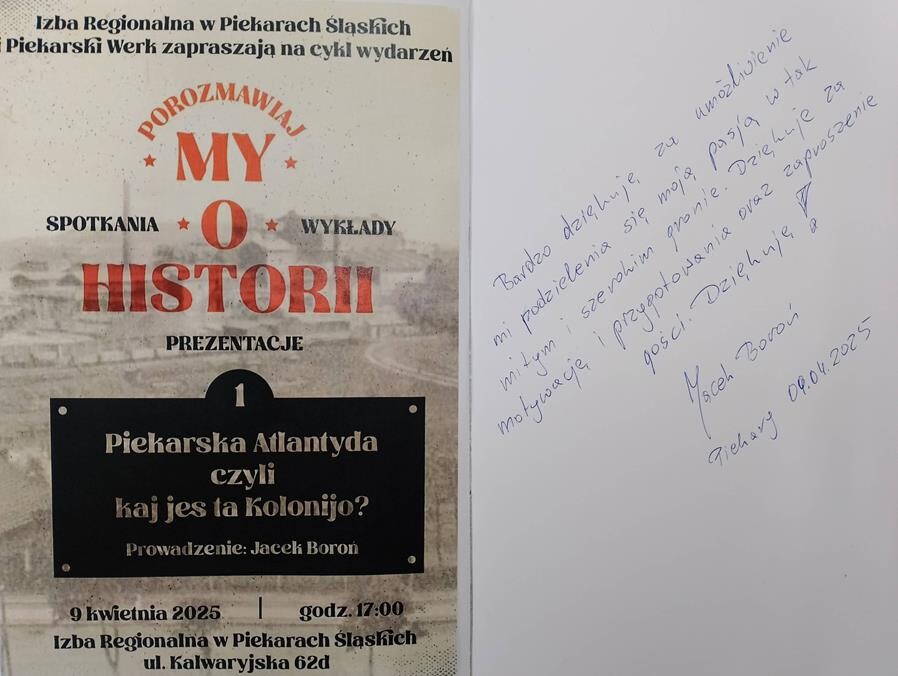 Izba Regionalna w Piekarach Śląskich
i Piekarski Werk zapraszają na cykl wydarzeń
POROZMAWIAJ
MY
SPOTKANIA O WYKŁADY
HISTORII
PREZENTACJE
1
Piekarska Atlantyda
czyli
kaj jes ta Kolonijo?
Prowadzenie: Jacek Boroń
9 kwietnia 2025 | godz. 17:00
Izba Regionalna w Piekarach Śląskich
ul. Kalwaryjska 62d
Bardzo dziękuję za umożliwienie
mi podzielenia się moją pasją w tak
miłym i szerokim gronie. Dziękuję za
motywację i przygotowania oraz zaproszenie
gości. Dziękuję
Jacek Boroń
Piekary 09.04.2025